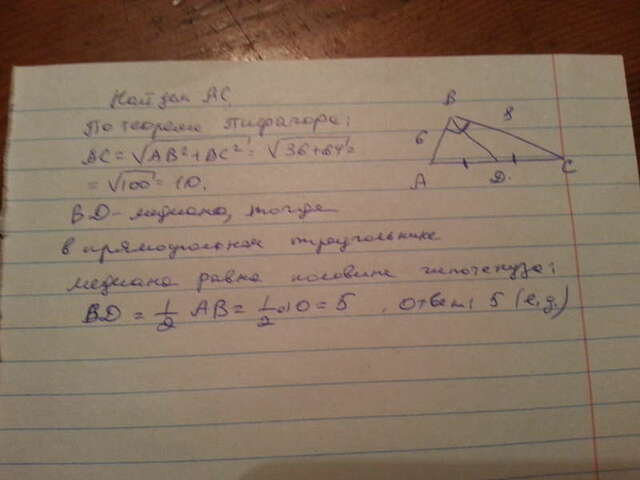 Найдем AC
По теореме Пифагора:
AC = √AB² + BC² = √36+64 =
= √100 = 10.
BD - медиана, тогда
в прямоугольном треугольнике
медиана равна половине гипотенузы:
BD = 1/2 AB = 1/2 · 10 = 5 , Ответ: 5 (е.д.)
B
8
6
A
D.
C